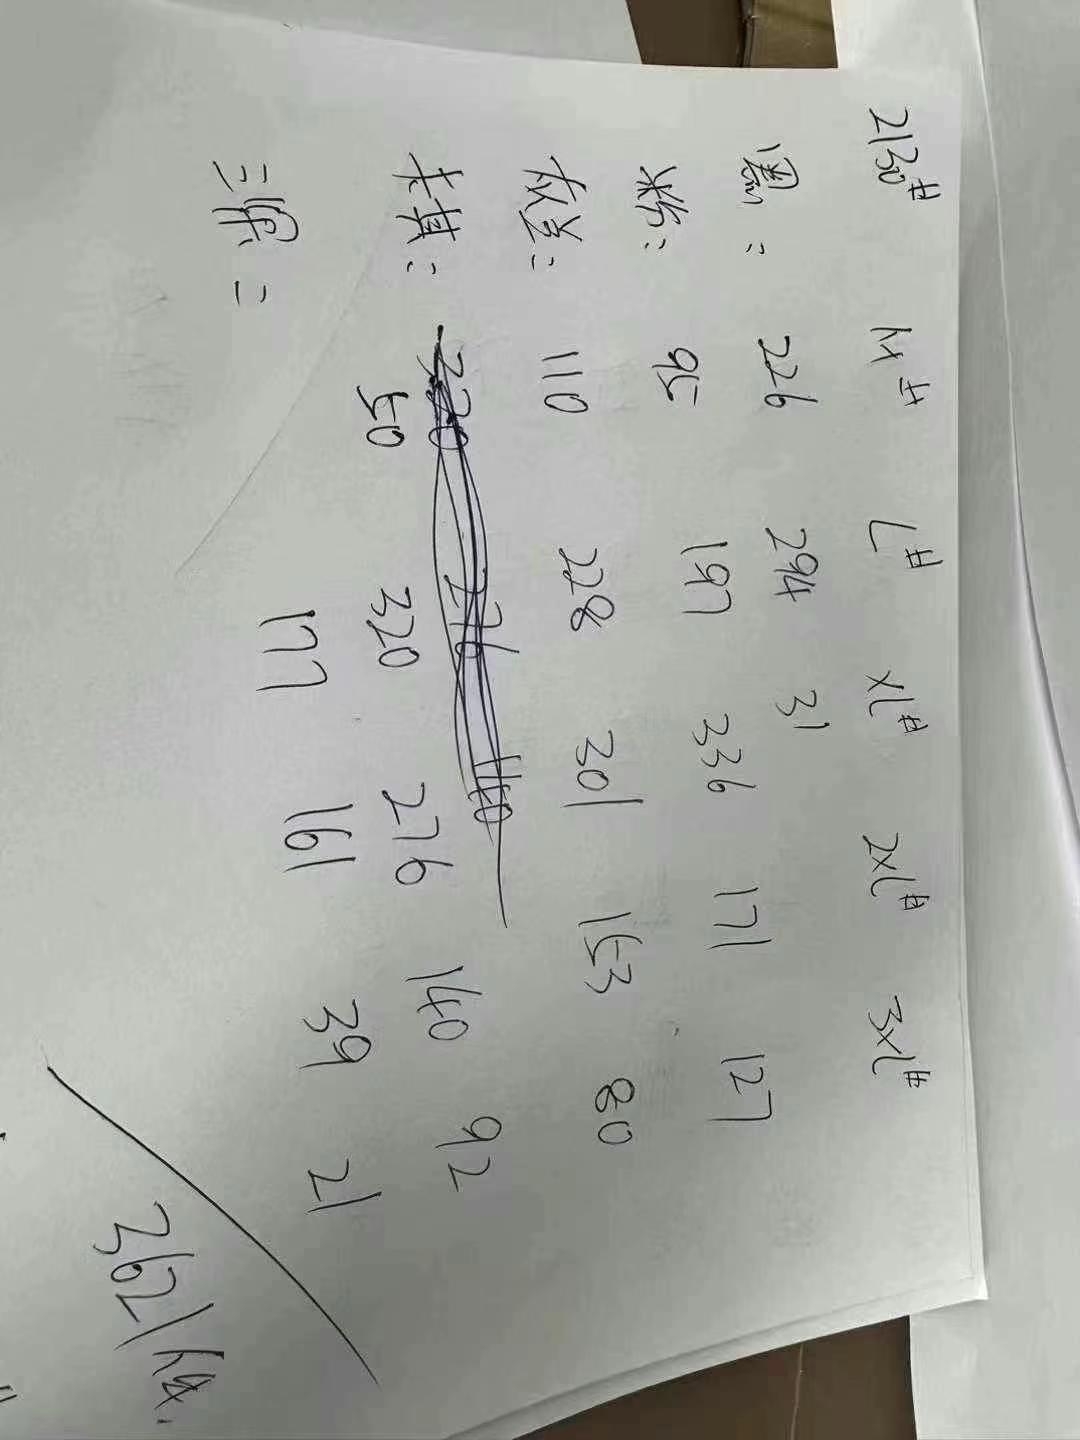 2130# M# L# XL# 2XL# 3XL#
黑: 226 294 31
粉: 95 197 336 171 127
灰兰: 110 228 301 153 80
卡其: 50 320 276 140 92
177 161 39 21
3621